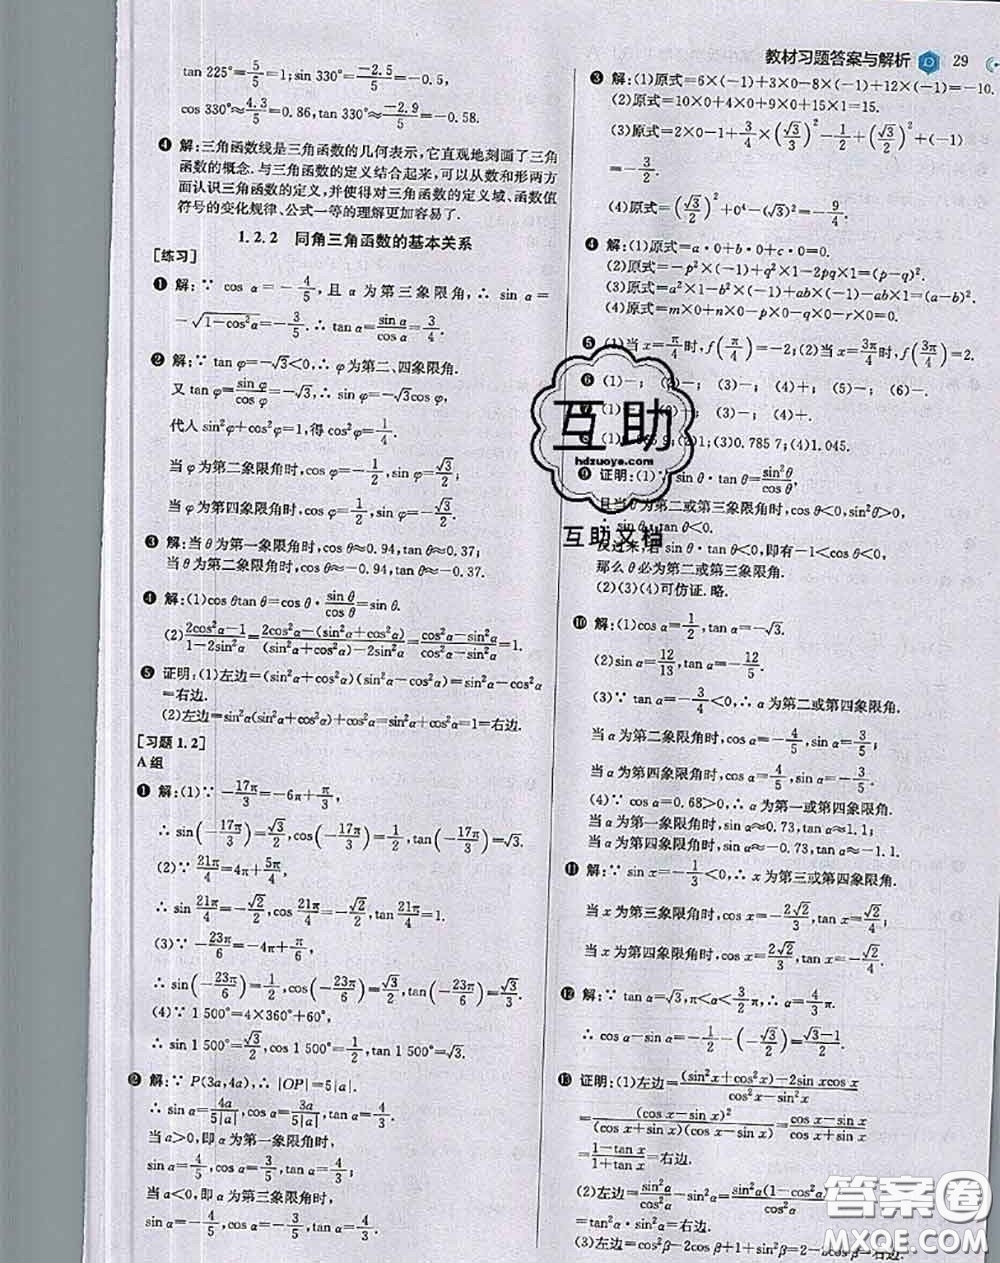 教材习题答案与解析 29
tan 225°=5/5=1; sin 330°≈-2.5/5=-0.5,
cos 330°≈4.3/5=0.86, tan 330°≈-2.9/5=-0.58.
❹ 解:三角函数线是三角函数的几何表示,它直观地刻画了三角
函数的概念.与三角函数的定义结合起来,可以从数和形两方
面认识三角函数的定义,并使得对三角函数的定义域、函数值
符号的变化规律、公式一等的理解更加容易了.
1.2.2 同角三角函数的基本关系
[练习]
❶ 解:∵ cos α=-4/5,且 α 为第三象限角,∴ sin α=
-√(1-cos²α)=-3/5.∴ tan α=sin α/cos α=3/4.
❷ 解:∵ tan φ=-√3<0,∴ φ为第二、四象限角.
又 tan φ=sin φ/cos φ=-√3,∴ sin φ=-√3cos φ,
代入 sin²φ+cos²φ=1,得 cos²φ=1/4.
当 φ为第二象限角时,cos φ=-1/2,sin φ=√3/2;
当 φ为第四象限角时,cos φ=1/2,sin φ=-√3/2.
❸ 解:当 θ 为第一象限角时,cos θ≈0.94,tan θ≈0.37;
当 θ 为第二象限角时,cos θ≈-0.94,tan θ≈-0.37.
❹ 解:(1)cos θtan θ=cos θ·sin θ/cos θ=sin θ.
(2)(2cos²α-1)/(1-2sin²α)=(2cos²α-(sin²α+cos²α))/((sin²α+cos²α)-2sin²α)=(cos²α-sin²α)/(cos²α-sin²α)=1.
❺ 证明:(1)左边=(sin²α+cos²α)(sin²α-cos²α)=sin²α-cos²α
=右边.
(2)左边=sin²α(sin²α+cos²α)+cos²α=sin²α+cos²α=1=右边.
[习题 1.2]
A 组
❶ 解:(1)∵ -17π/3=-6π+π/3,
∴ sin(-17π/3)=√3/2,cos(-17π/3)=1/2,tan(-17π/3)=√3.
(2)∵ 21π/4=4π+5π/4,
∴ sin 21π/4=-√2/2,cos 21π/4=-√2/2,tan 21π/4=1.
(3)∵ -23π/6=-4π+π/6,
∴ sin(-23π/6)=1/2,cos(-23π/6)=√3/2,tan(-23π/6)=√3/3.
(4)∵ 1 500°=4×360°+60°,
∴ sin 1 500°=√3/2,cos 1 500°=1/2,tan 1 500°=√3.
❷ 解:∵ P(3a,4a),∴ |OP|=5|a|.
∴ sin α=4a/5|a|,cos α=3a/5|a|,tan α=4/3.
当 a>0,即 α 为第一象限角时,
sin α=4/5,cos α=3/5,tan α=4/3.
当 a<0,即 α 为第三象限角时,
sin α=-4/5,cos α=-3/5,tan α=4/3.
❸ 解:(1)原式=6×(-1)+3×0-8×(-1)+12×(-1)=-10.
(2)原式=10×0+4×0+9×0+15×1=15.
(3)原式=2×0-1+3/4×(√3/3)²-1/2+(√3/2)²+(-1)
=-3/2.
(4)原式=(√3/2)²+0⁴-(√3)²=-9/4.
❹ 解:(1)原式=a·0+b·0+c·0=0.
(2)原式=-p²×(-1)+q²×1-2pq×1=(p-q)².
(3)原式=a²×1-b²×(-1)+ab×(-1)-ab×1=(a-b)².
(4)原式=m×0+n×0-p×0-q×0-r×0=0.
❺ (1)当 x=π/4 时,f(π/4)=-2;(2)当 x=3π/4 时,f(3π/4)=2.
❻ (1)-; (2)-; (3)-; (4)+; (5)-; (6)-.
(3)-; (4)+.
(3)0.785 7;(4)1.045.
❾ 证明:(1) sin θ·tan θ=sin²θ/cos θ,
且当 θ 为第二或第三象限角时,cos θ<0,
sin θ·tan θ<0.
反过来,若 sin θ·tan θ<0,即有-1<cos θ<0,
那么 θ必为第二或第三象限角.
(2)(3)(4)可仿证.略.
❿ 解:(1)cos α=1/2,tan α=-√3.
(2)sin α=12/13,tan α=-12/5.
(3)∵ tan α=-3/4<0,∴ α 为第二或第四象限角.
当 α 为第二象限角时,cos α=-4/5,sin α=3/5;
当 α 为第四象限角时,cos α=4/5,sin α=-3/5.
(4)∵ cos α=0.68>0,∴ α 为第一或第四象限角.
当 α 为第一象限角时,sin α≈0.73,tan α≈1.1;
当 α 为第四象限角时,sin α≈-0.73,tan α≈-1.1.
⓫ 解:∵ sin x=-1/3<0,∴ x 为第三或第四象限角.
当 x 为第三象限角时,cos x=-2√2/3,tan x=√2/4;
当 x 为第四象限角时,cos x=2√2/3,tan x=-√2/4.
⓬ 解:∵ tan α=√3,π<α<3/2π,∴ α=4/3π.
∴ cos α-sin α=-1/2-(-√3/2)=(√3-1)/2.
⓭ 证明:(1)左边=((sin²x+cos²x)-2sin xcos x)/(cos²x-sin²x)
=(cos x-sin x)²/((cos x+sin x)(cos x-sin x))=(cos x-sin x)/(cos x+sin x)
=(1-tan x)/(1+tan x)=右边.
(2)左边=sin²α/cos²α-sin²α=sin²α(1-cos²α)/cos²α
=tan²α·sin²α=右边.
(3)左边=cos²β-2cos β+1+sin²β=2-2cos β=右边.
互助
hdzuoye.com
互助文档
答案卷
MXQE.COM